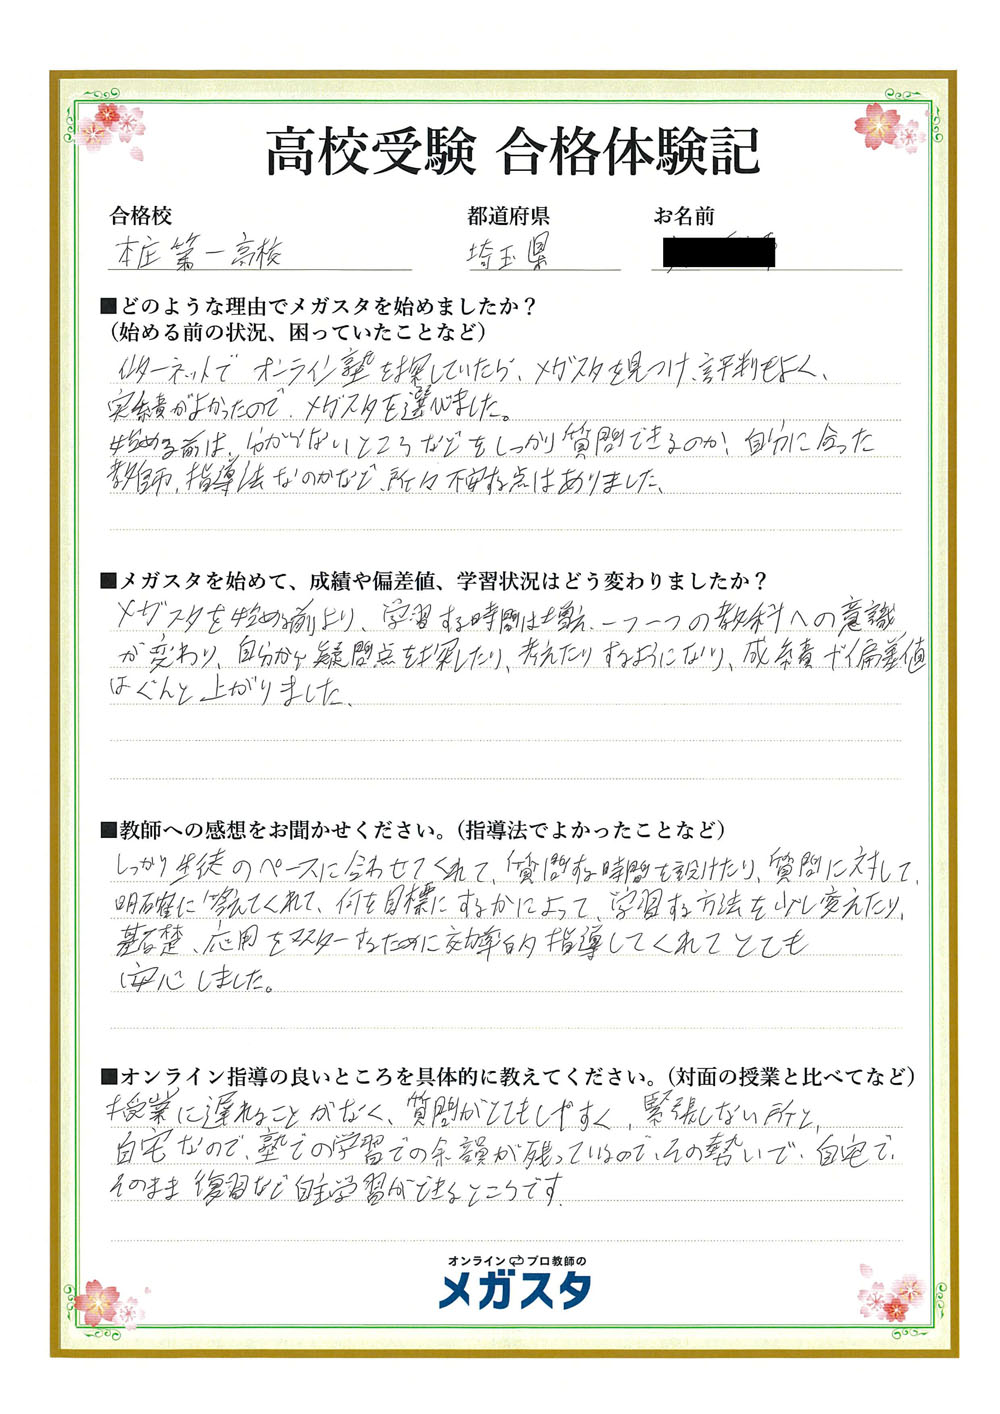 高校受験 合格体験記
合格校 都道府県 お名前
本庄第一高校 埼玉県
■どのような理由でメガスタを始めましたか？
（始める前の状況、困っていたことなど）
インターネットで オンライン塾を探していたら、メガスタを見つけ、評判もよく、
実績がよかったので、メガスタを選びました。
始める前は、分からないところなどをしっかり質問できるのか、自分に合った
教師、指導法なのかなど、所々不安な点はありました、
■メガスタを始めて、成績や偏差値、学習状況はどう変わりましたか？
メガスタを始める前より、学習する時間は増え、一つ一つの教科への意識
が変わり、自分から疑問点を探したり、考えたりするようになり、成績や偏差値
はぐんと上がりました、
■教師への感想をお聞かせください。（指導法でよかったことなど）
しっかり生徒のペースに合わせてくれて、質問する時間を設けたり、質問に対して、
明確に答えてくれて、何を目標にするかによって、学習する方法を少し変えたり、
基礎、応用をマスターするために効率的指導してくれてとても
安心しました。
■オンライン指導の良いところを具体的に教えてください。（対面の授業と比べてなど）
授業に遅れることがなく、質問がとてもしやすく、緊張しない所と、
自宅なので、塾での学習での余韻が残っているので、その勢いで、自宅で、
そのまま復習など自主学習ができるところです、
オンライン プロ教師の
メガスタ